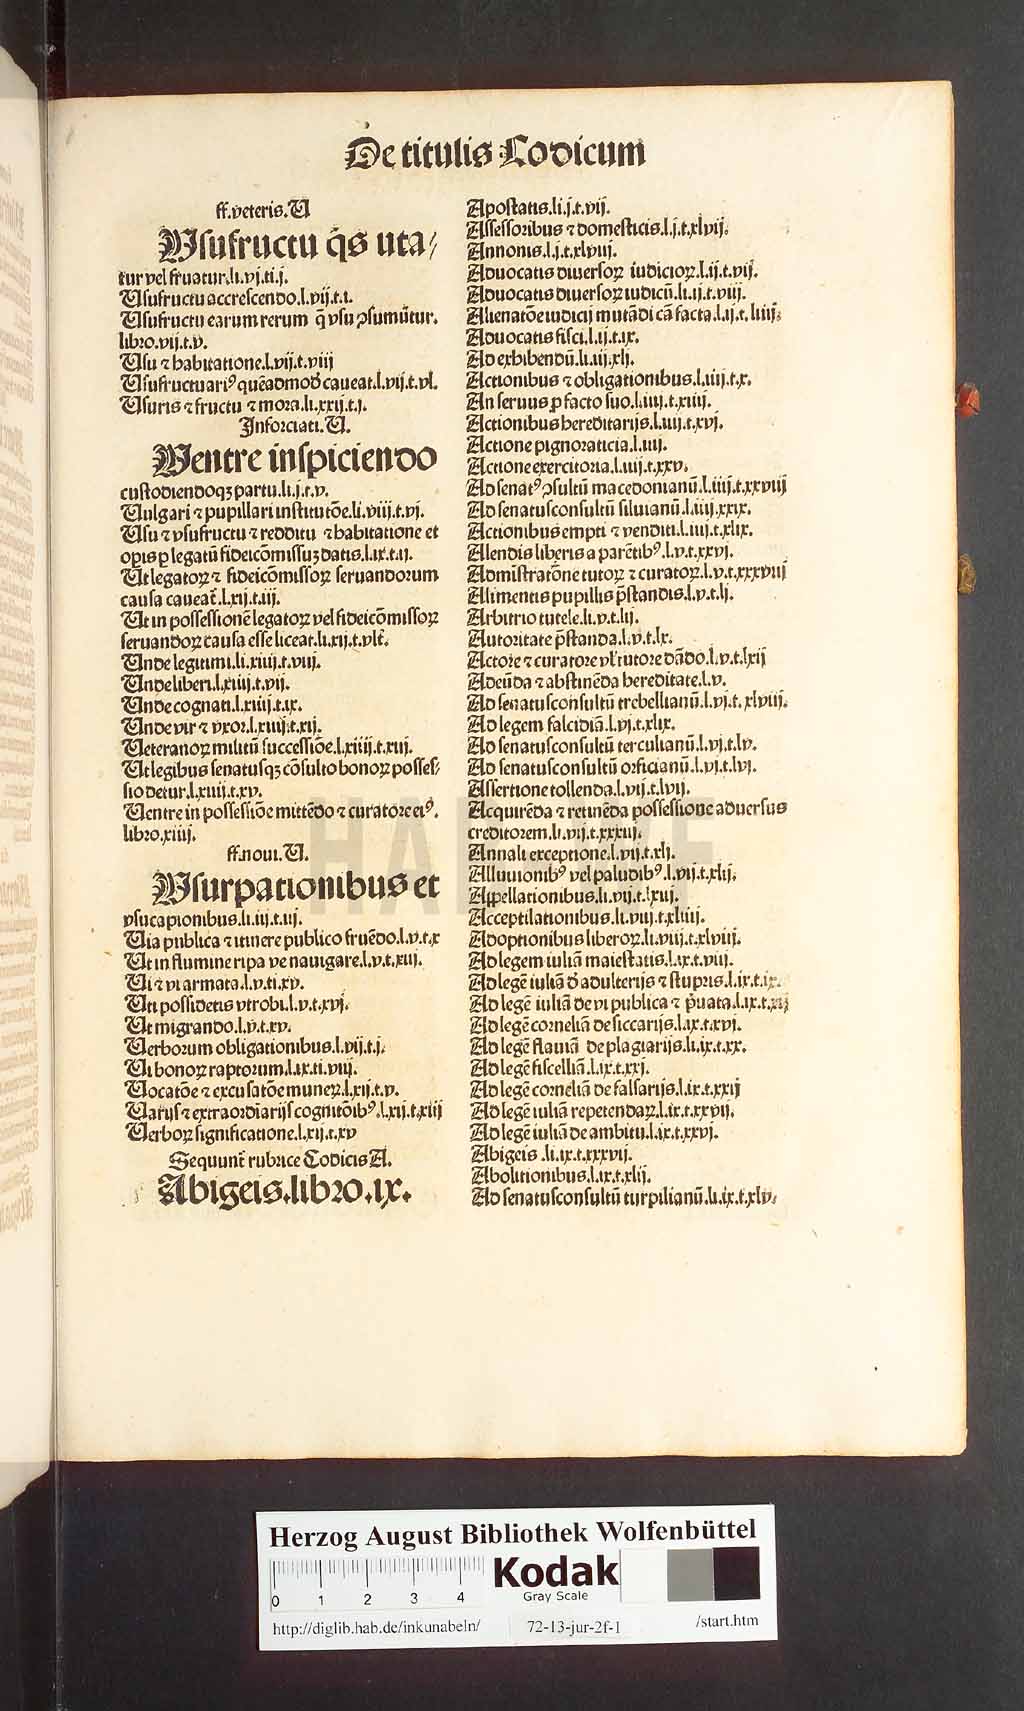 De titulis Codicum
ff.veteris.U
Usufructu q̃s uta⸗
tur vel fruatur.li.vj.ti.j.
Usufructu accrescendo.l.vij.t.i.
Usufructu earum rerum q̃ vsu ꝯsumũtur.
libro.vij.t.v.
Usu ⁊ habitatione.l.vij.t.viij
Usufructuariꝰ quẽadmoď caueat.l.vij.t.vl.
Usuris ⁊ fructu ⁊ mora.li.xxij.t.j.
Inforciati.U.
Uentre inspiciendo
custodiendoqꝫ partu.li.j.t.v.
Uulgari ⁊ pupillari institutõe.li.viij.t.vj.
Usu ⁊ vsufructu ⁊ redditu ⁊ habitatione et
oꝑis ꝑ legatũ fideicõmissuꝫ datis.l.ix.t.ij.
Ut legatoꝝ ⁊ fideicõmissoꝝ seruandorum
causa caueat̃.l.xij.t.iij.
Ut in possessionẽ legatoꝝ vel fideicõmissoꝝ
seruandoꝝ causa esse liceat.li.xij.t.vlt̃.
Unde legitimi.li.xiiij.t.viij.
Unde liberi.l.xiiij.t.vij.
Unde cognati.l.xiiij.t.ix.
Unde vir ⁊ vxor.l.xiiij.t.xij.
Ueteranoꝝ militũ successiõe.l.xiiij.t.xiij.
Ut legibus senatusqꝫ cõsulto bonoꝝ posses⸗
sio detur.l.xiiij.t.xv.
Uentre in possessiõe mittẽdo ⁊ curatore eiꝰ.
libro.xiiij.
ff.noui.U.
Usurpationibus et
vsucapionibus.li.iij.t.iij.
Uia publica ⁊ itinere publico fruẽdo.l.v.t.x
Ut in flumine ripa ve nauigare.l.v.t.xiij.
Ui ⁊ vi armata.l.v.ti.xv.
Uti possidetis vtrobi.l.v.t.xvj.
Ut migrando.l.v.t.xv.
Uerborum obligationibus.l.vij.t.j.
Ui bonoꝝ raptorum.l.ix.ti.viij.
Uocatõe ⁊ excusatõe muneꝝ.l.xij.t.v.
Uarijs ⁊ extraordiarijs cognitõibꝰ.l.xij.t.xiij
Uerboꝝ significatione.l.xij.t.xv
Sequunt̃ rubrice Codicis A.
Abigeis.libro.ix.
Apostatis.li.j.t.vij.
Assessoribus ⁊ domesticis.l.j.t.xlvij.
Annonis.l.j.t.xlviij.
Aduocatis diuersoꝝ iudicioꝝ.l.ij.t.vij.
Aduocatis diuersoꝝ iudicũ.li.ij.t.viij.
Alienatõe iudicij mutãdi cã facta.l.ij.t.liiij.
Aduocatis fisci.l.ij.t.ix.
Ad exhibendũ.li.iij.xlj.
Actionibus ⁊ obligationibus.l.iiij.t.x.
An seruus ꝓ facto suo.l.iiij.t.xiiij.
Actionibus hereditarijs.l.iiij.t.xvj.
Actione pignoraticia.l.iiij.
Actione exercitoria.l.iiij.t.xxv.
Ad senatꝰꝯsultũ macedonianũ.l.iiij.t.xxviij
Ad senatusconsultũ siluianũ.l.iiij.xxix.
Actionibus empti ⁊ venditi.l.iiij.t.xlix.
Alendis liberis a parẽtibꝰ.l.v.t.xxvj.
Admĩstratõne tutoꝝ ⁊ curatoꝝ.l.v.t.xxxviij
Alimentis pupillis p̃standis.l.v.t.lj.
Arbitrio tutele.li.v.t.lij.
Autoritate p̃standa.l.v.t.lx.
Actore ⁊ curatore vl̃ tutore dãdo.l.v.t.lxij
Adeũda ⁊ abstinẽda hereditate.l.v.
Ad senatusconsultũ trebellianũ.l.vj.t.xlviij.
Ad legem falcidiã.l.vj.t.xlix.
Ad senatusconsultũ terculianũ.l.vj.t.lv.
Ad senatusconsultũ orficianũ.l.vj.t.lvj.
Assertione tollenda.l.vij.t.lvij.
Acquirẽda ⁊ retinẽda possessione aduersus
creditorem.li.vij.t.xxxij.
Annali exceptione.l.vij.t.xlj.
Alluuionibꝰ vel paludibꝰ.l.vij.t.xlij.
Appellationibus.li.vij.t.lxij.
Acceptilationibus.li.viij.t.xliiij.
Adoptionibus liberoꝝ.li.viij.t.xlviij.
Ad legem iuliã maiestatis.l.ix.t.viij.
Ad legẽ iuliã ď adulterijs ⁊ stupris.l.ix.t.ix.
Ad legẽ iuliã de vi publica ⁊ p̃uata.l.ix.t.xij
Ad legẽ corneliã de siccarijs.l.ix.t.xvj.
Ad legẽ flauiã de plagiarijs.li.ix.t.xx.
Ad legẽ fiscelliã.l.ix.t.xxj.
Ad legẽ corneliã de falsarijs.l.ix.t.xxij
Ad legẽ iuliã repetendaꝝ.l.ix.t.xxvij.
Ad legẽ iuliã de ambitu.l.ix.t.xxvj.
Abigeis .li.ix.t.xxxvij.
Abolitionibus.l.ix.t.xlij.
Ad senatusconsultũ turpilianũ.li.ix.t.xlv.
HAB WF
Herzog August Bibliothek Wolfenbüttel
0 1 2 3 4
Kodak
Gray Scale
http://diglib.hab.de/inkunabeln/ 72-13-jur-2f-1 /start.htm